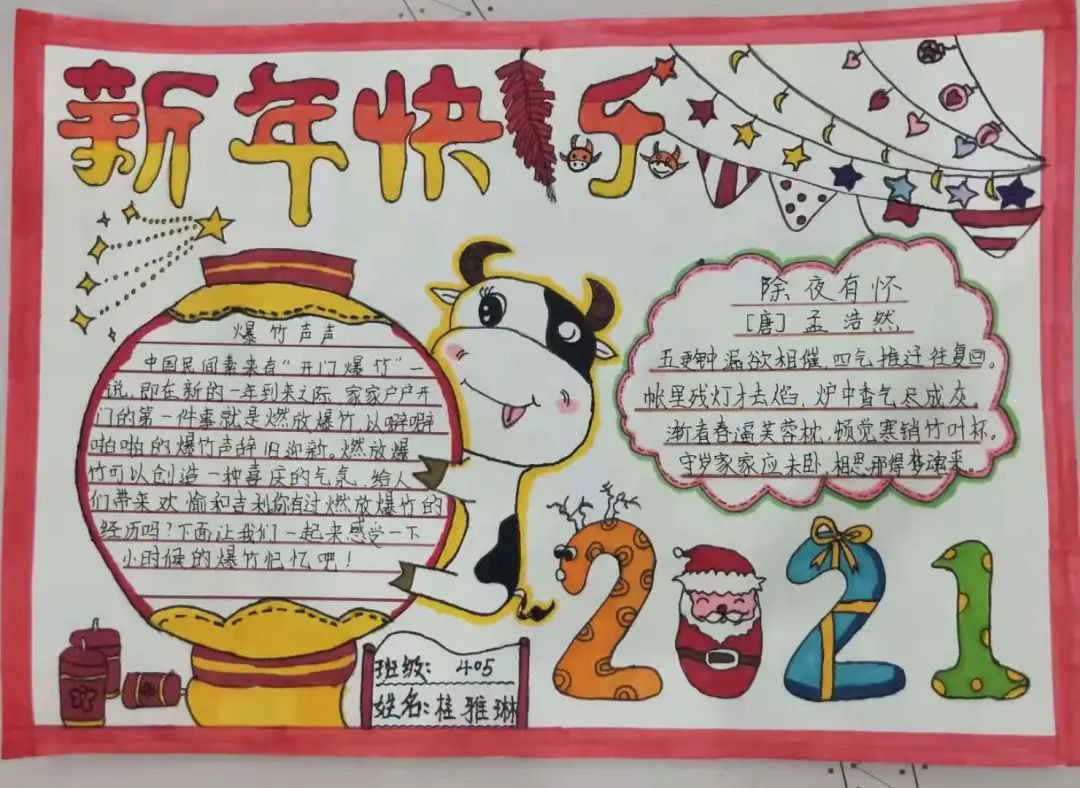 新年快乐
爆竹声声
中国民间素来有"开门爆竹"一
说，即在新的一年到来之际，家家户户开
门的第一件事就是燃放爆竹，以噼噼
啪啪的爆竹声辞旧迎新。燃放爆
竹可以创造一种喜庆的气氛，给人
们带来欢愉和吉利你有过燃放爆竹的
经历吗？下面让我们一起来感受一下
小时候的爆竹记忆吧！
除夜有怀
[唐] 孟浩然
五更钟漏欲相催，四气推迁往复回。
帐里残灯才去焰，炉中香气尽成灰。
渐看春逼芙蓉枕，顿觉寒销竹叶杯。
守岁家家应未卧，相思那得梦魂来。
2021
班级：405
姓名：桂雅琳